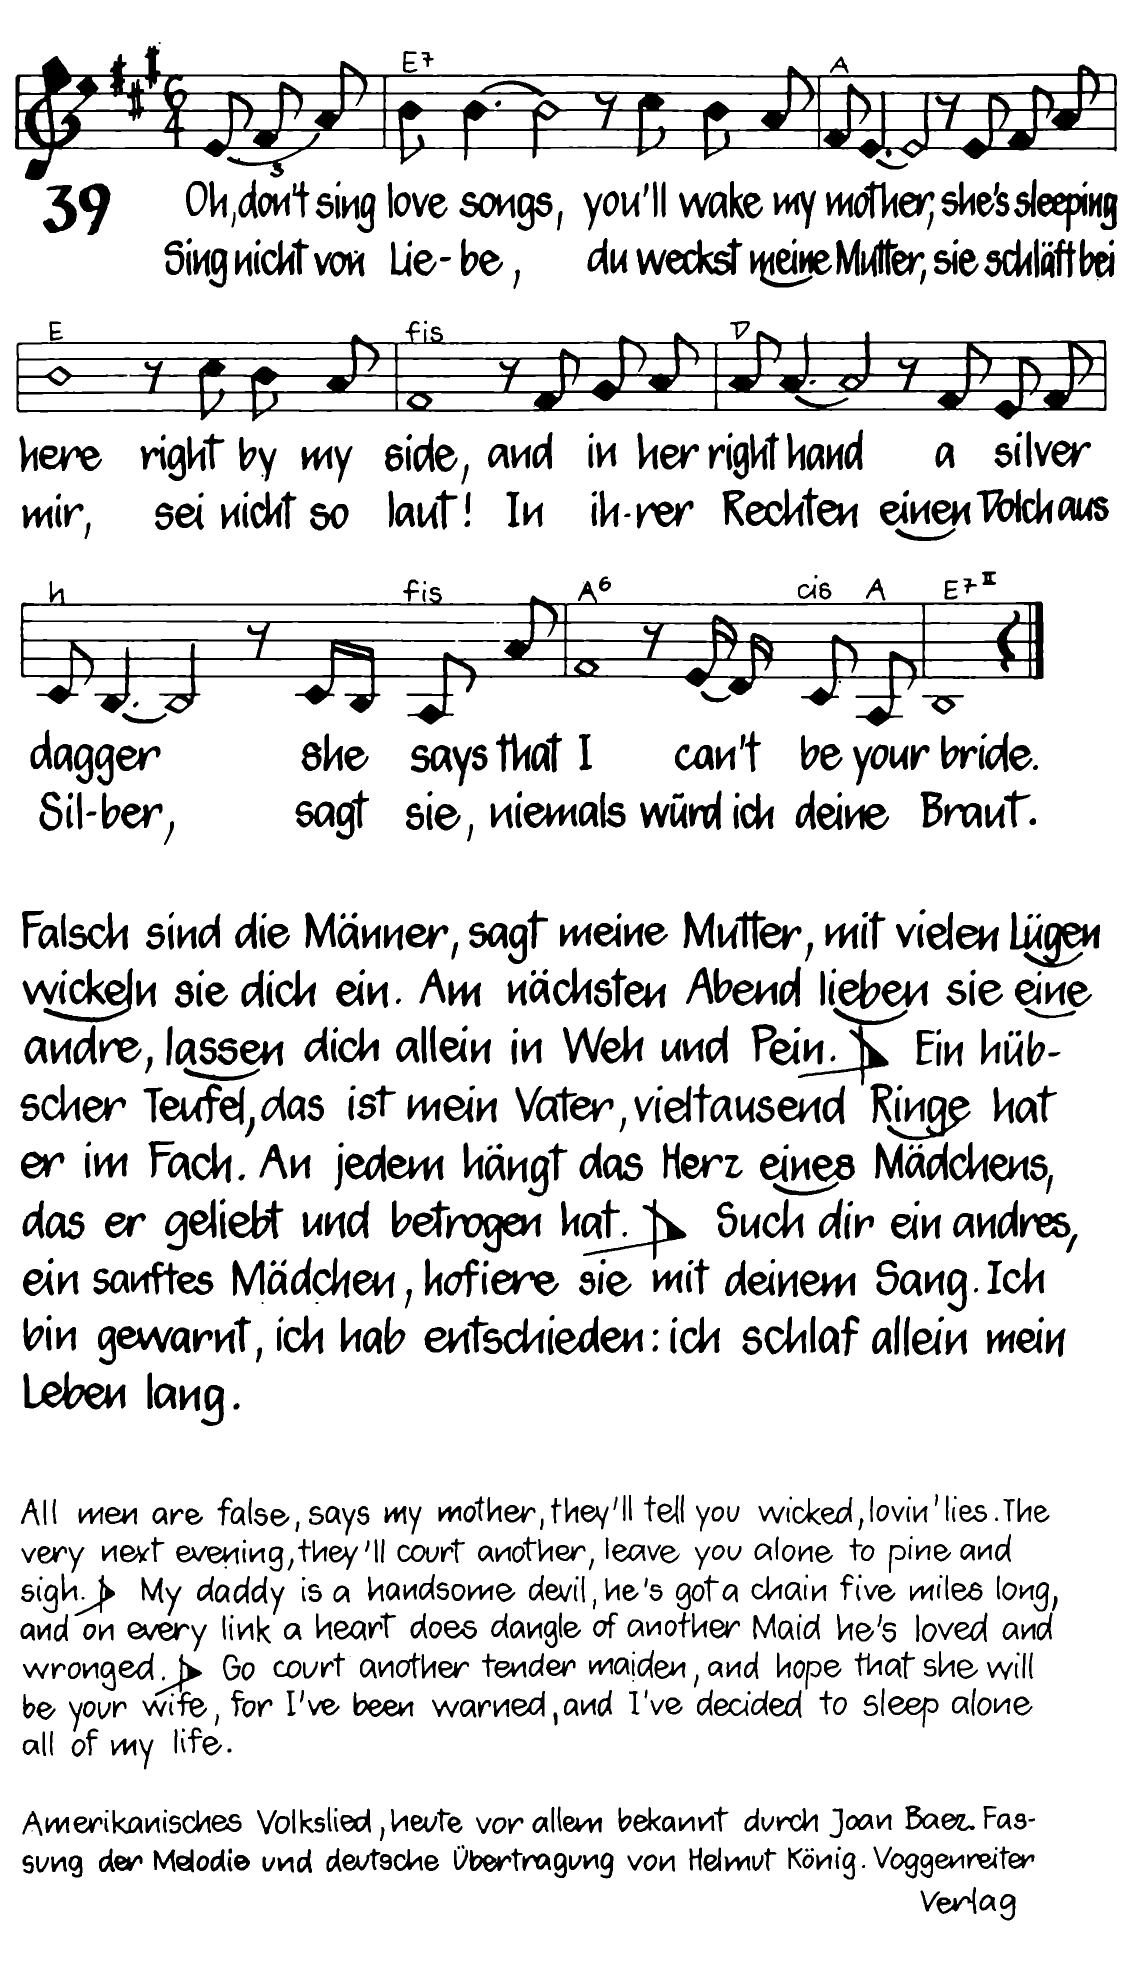 E7 A
6
4
3
39 Oh, don't sing love songs, you'll wake my mother, she's sleeping
Sing nicht von Lie-be, du weckst meine Mutter, sie schläft bei
E fis D
here right by my side, and in her right hand a silver
mir, sei nicht so laut! In ih-rer Rechten einen Dolch aus
h fis A6 cis A E7 II
dagger she says that I can't be your bride.
Sil-ber, sagt sie, niemals würd ich deine Braut.
Falsch sind die Männer, sagt meine Mutter, mit vielen Lügen
wickeln sie dich ein. Am nächsten Abend lieben sie eine
andre, lassen dich allein in Weh und Pein. Ein hüb-
scher Teufel, das ist mein Vater, vieltausend Ringe hat
er im Fach. An jedem hängt das Herz eines Mädchens,
das er geliebt und betrogen hat. Such dir ein andres,
ein sanftes Mädchen, hofiere sie mit deinem Sang. Ich
bin gewarnt, ich hab entschieden: ich schlaf allein mein
Leben lang.
All men are false, says my mother, they'll tell you wicked, lovin' lies. The
very next evening, they'll court another, leave you alone to pine and
sigh. My daddy is a handsome devil, he's got a chain five miles long,
and on every link a heart does dangle of another Maid he's loved and
wronged. Go court another tender maiden, and hope that she will
be your wife, for I've been warned, and I've decided to sleep alone
all of my life.
Amerikanisches Volkslied, heute vor allem bekannt durch Joan Baez. Fas-
sung der Melodie und deutsche Übertragung von Helmut König. Voggenreiter
Verlag